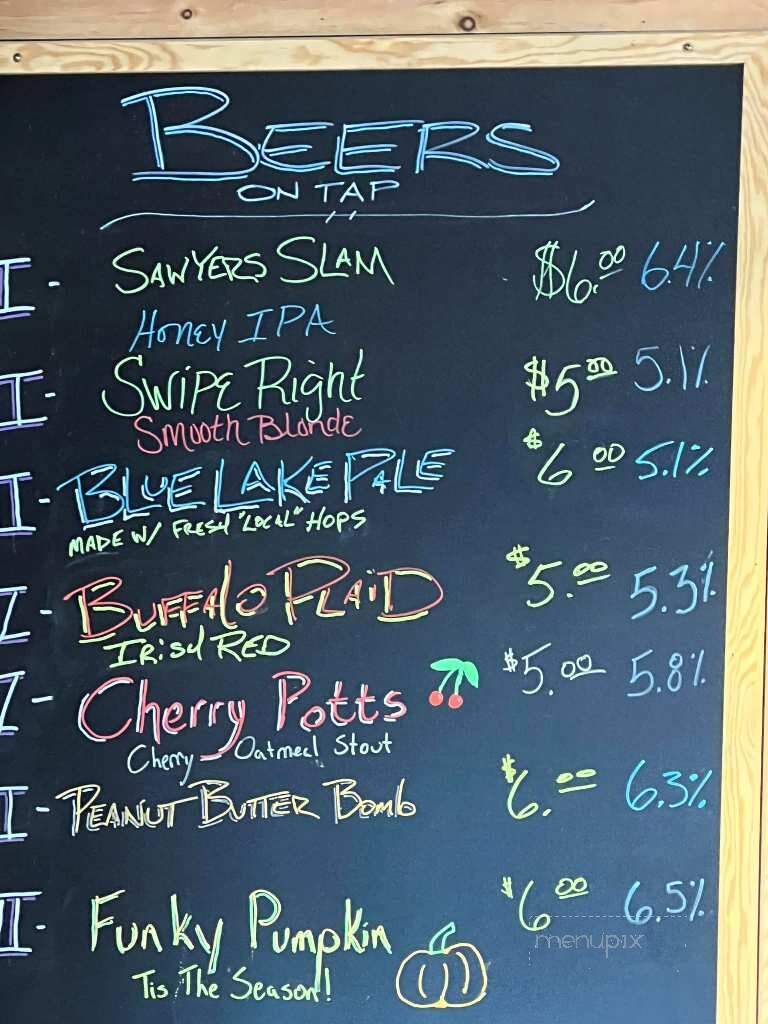 BEERS
ON TAP
I - SAWYERS SLAM $6.00 6.4%
HONEY IPA
I - SWIPE RIGHT $5.00 5.1%
SMOOTH BLONDE
I - BLUE LAKE PALE $6.00 5.1%
MADE W/ FRESH "LOCAL" HOPS
I - BUFFALO PLAID $5.00 5.3%
IRISH RED
I - Cherry Potts $5.00 5.8%
Cherry - Oatmeal Stout
I - PEANUT BUTTER BOMB $6.00 6.3%
II - Funky Pumpkin $6.00 6.5%
menupix
Tis The Season!